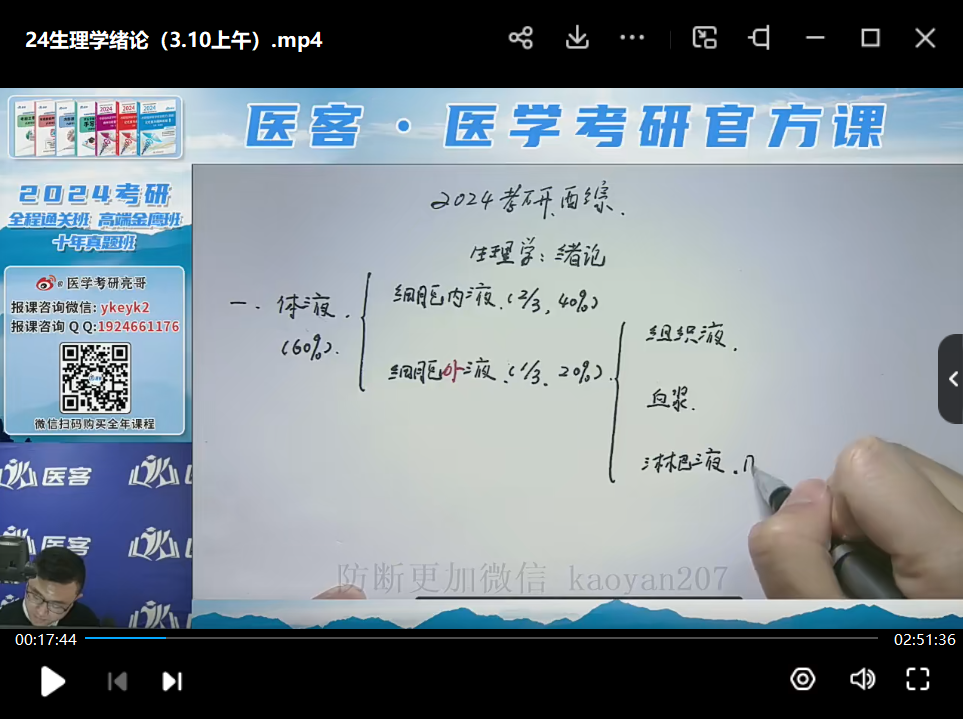 24生理学绪论（3.10上午）.mp4
医客·医学考研官方课
2024考研
全程通关班 高端金鹰班
十年真题班
@医学考研亮哥
报课咨询微信: ykeyk2
报课咨询QQ:1924661176
微信扫码购买全年课程
2024考研西综.
生理学：绪论
一.体液.
(60%).
细胞内液.(2/3,40%)
细胞外液.(1/3.20%).
组织液.
血浆.
淋巴液.
医客
医客
防断更加微信 kaoyan207
00:17:44
02:51:36